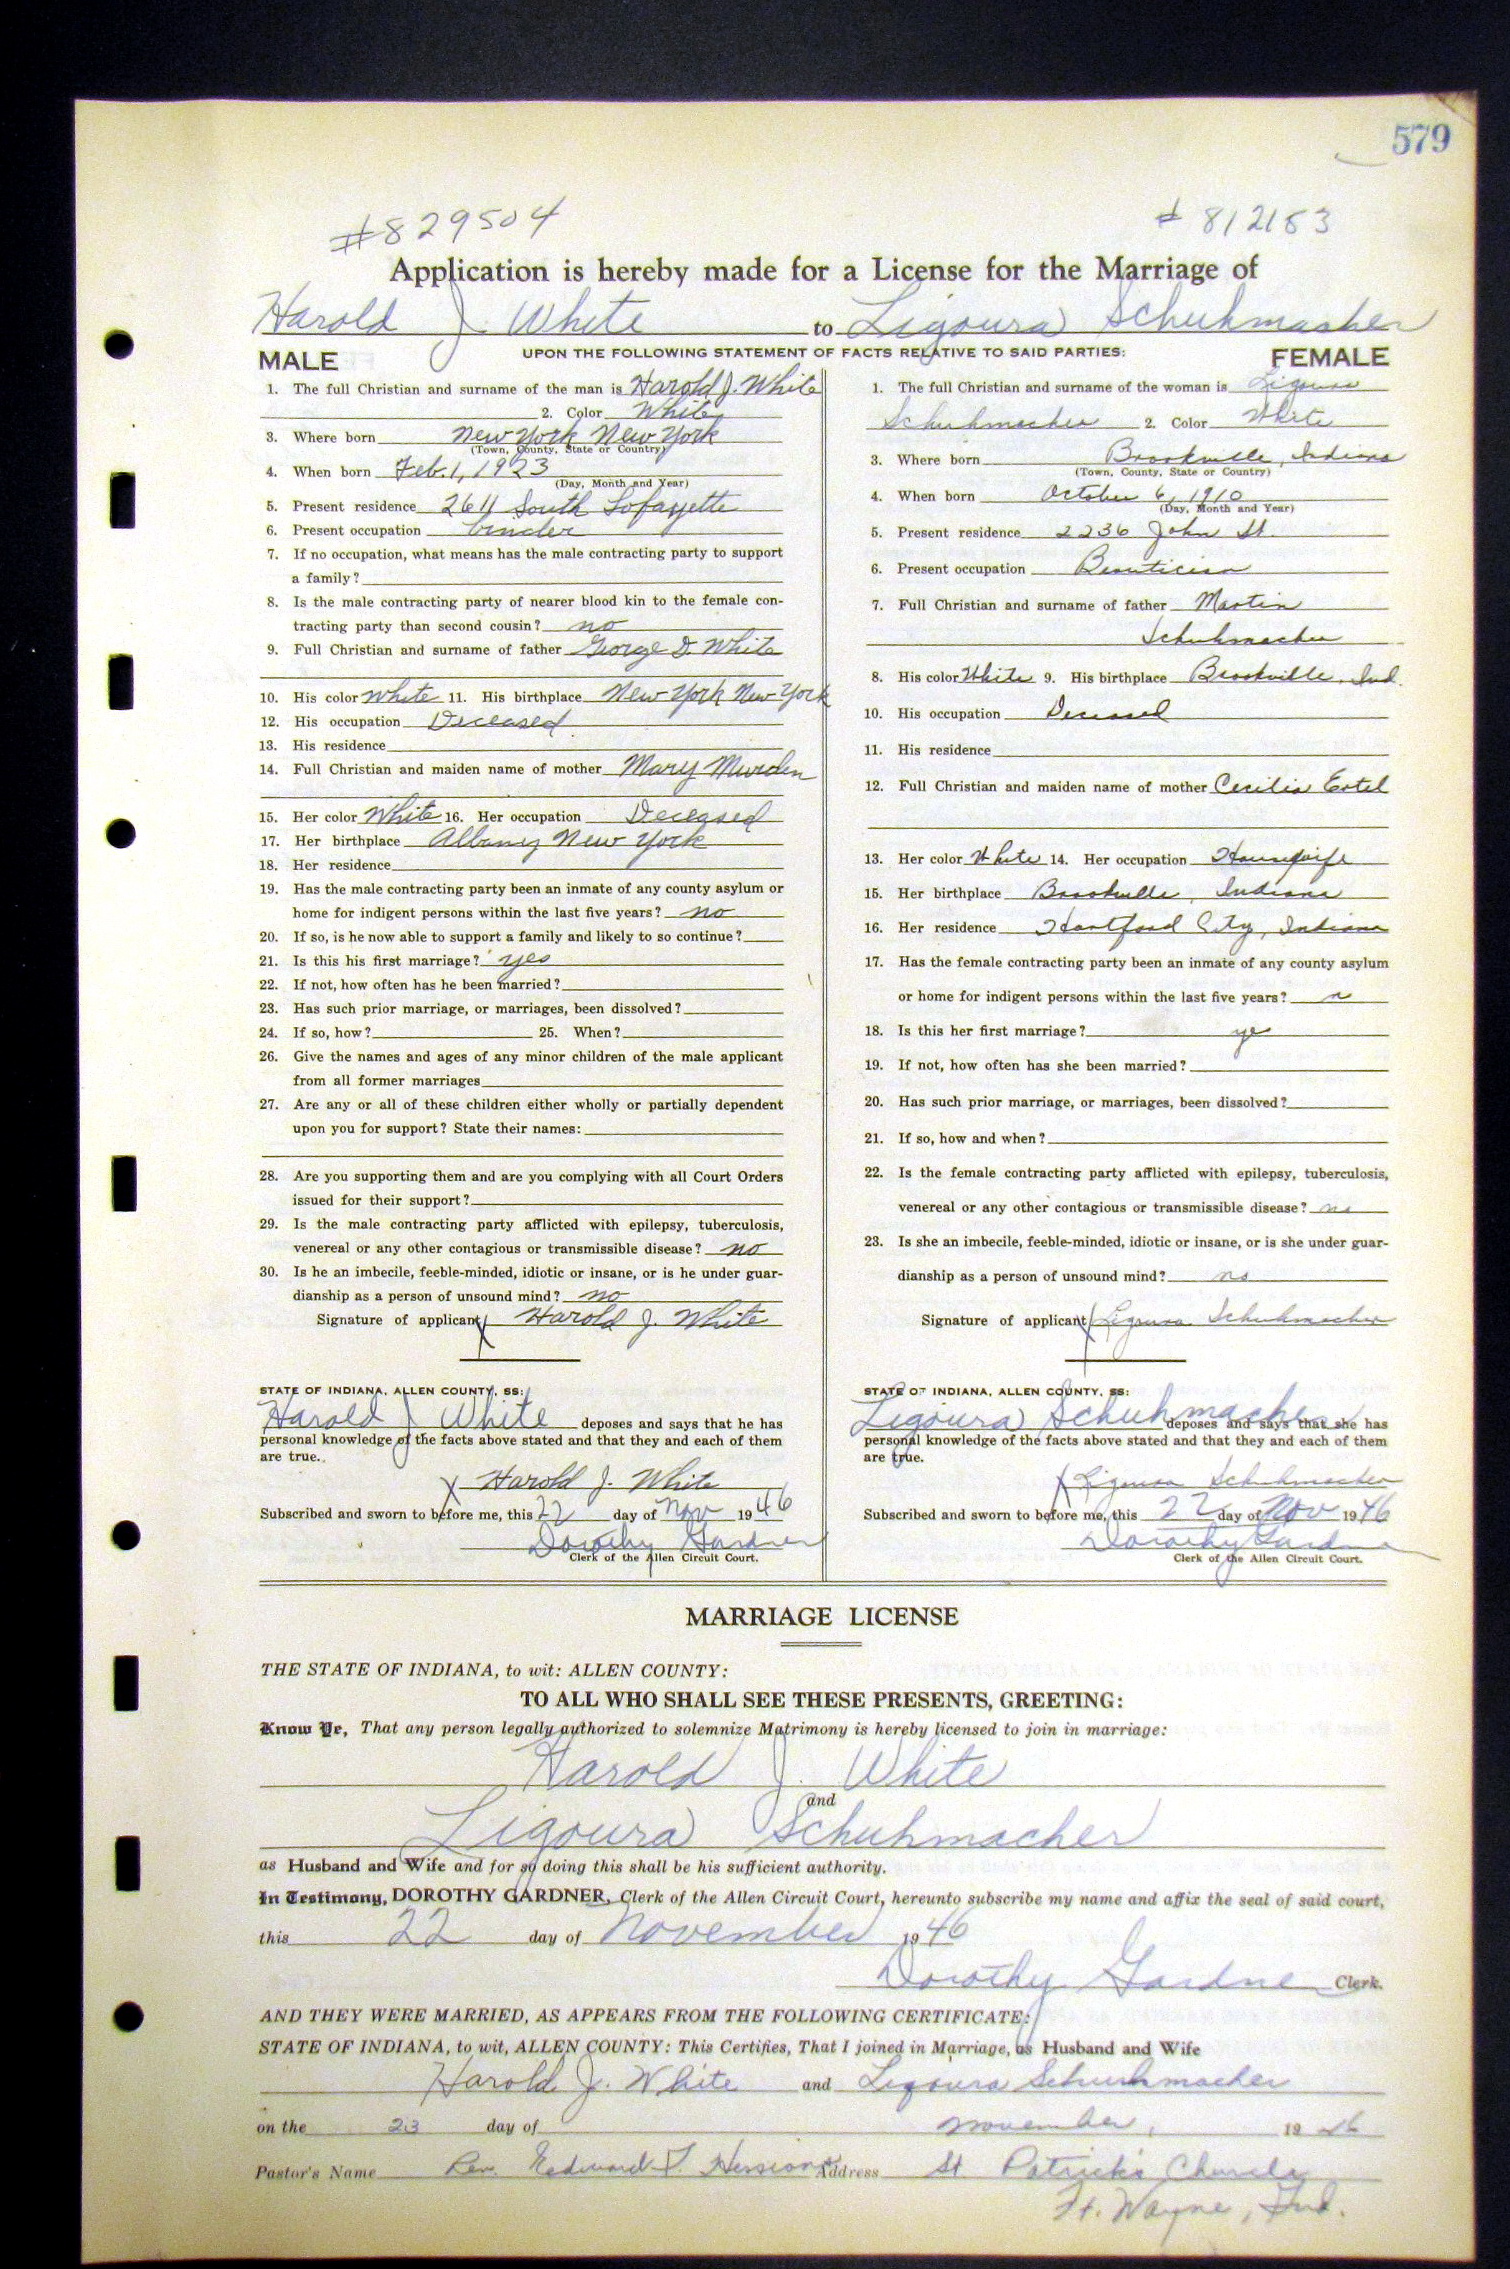 579
#829504 # 812183
Application is hereby made for a License for the Marriage of
Harold J White to Ligoura Schuhmacher
MALE UPON THE FOLLOWING STATEMENT OF FACTS RELATIVE TO SAID PARTIES: FEMALE
1. The full Christian and surname of the man is Harold J. White
2. Color White
3. Where born New York New York
(Town, County, State or Country)
4. When born Feb. 1, 1923
(Day, Month and Year)
5. Present residence 2611 South Lafayette
6. Present occupation
7. If no occupation, what means has the male contracting party to support
a family?
8. Is the male contracting party of nearer blood kin to the female con-
tracting party than second cousin? no
9. Full Christian and surname of father George D. White
10. His color White 11. His birthplace New York New York
12. His occupation Deceased
13. His residence
14. Full Christian and maiden name of mother Mary Murden
15. Her color White 16. Her occupation Deceased
17. Her birthplace Albany New York
18. Her residence
19. Has the male contracting party been an inmate of any county asylum or
home for indigent persons within the last five years? no
20. If so, is he now able to support a family and likely to so continue?
21. Is this his first marriage? yes
22. If not, how often has he been married?
23. Has such prior marriage, or marriages, been dissolved?
24. If so, how? 25. When?
26. Give the names and ages of any minor children of the male applicant
from all former marriages
27. Are any or all of these children either wholly or partially dependent
upon you for support? State their names:
28. Are you supporting them and are you complying with all Court Orders
issued for their support?
29. Is the male contracting party afflicted with epilepsy, tuberculosis,
venereal or any other contagious or transmissible disease? no
30. Is he an imbecile, feeble-minded, idiotic or insane, or is he under guar-
dianship as a person of unsound mind? no
Signature of applicant X Harold J. White
STATE OF INDIANA, ALLEN COUNTY, SS:
Harold J White deposes and says that he has
personal knowledge of the facts above stated and that they and each of them
are true.
X Harold J. White
Subscribed and sworn to before me, this 22 day of Nov 1946
Dorothy Gardner
Clerk of the Allen Circuit Court.
1. The full Christian and surname of the woman is Ligoura
Schuhmacher 2. Color White
3. Where born Brookville, Indiana
(Town, County, State or Country)
4. When born October 6, 1910
(Day, Month and Year)
5. Present residence 2236 John St.
6. Present occupation Beautician
7. Full Christian and surname of father Martin
Schuhmacher
8. His color White 9. His birthplace Brookville, Ind.
10. His occupation Deceased
11. His residence
12. Full Christian and maiden name of mother Cecilia Ertel
13. Her color White 14. Her occupation Housewife
15. Her birthplace Brookville, Indiana
16. Her residence Hartford City, Indiana
17. Has the female contracting party been an inmate of any county asylum
or home for indigent persons within the last five years? n
18. Is this her first marriage? yes
19. If not, how often has she been married?
20. Has such prior marriage, or marriages, been dissolved?
21. If so, how and when?
22. Is the female contracting party afflicted with epilepsy, tuberculosis,
venereal or any other contagious or transmissible disease? no
23. Is she an imbecile, feeble-minded, idiotic or insane, or is she under guar-
dianship as a person of unsound mind? no
Signature of applicant X Ligoura Schuhmacher
STATE OF INDIANA, ALLEN COUNTY, SS:
Ligoura Schuhmacher deposes and says that she has
personal knowledge of the facts above stated and that they and each of them
are true.
X Ligoura Schuhmacher
Subscribed and sworn to before me, this 22 day of Nov 1946
Dorothy Gardner
Clerk of the Allen Circuit Court.
MARRIAGE LICENSE
THE STATE OF INDIANA, to wit: ALLEN COUNTY:
TO ALL WHO SHALL SEE THESE PRESENTS, GREETING:
Know Ye, That any person legally authorized to solemnize Matrimony is hereby licensed to join in marriage:
Harold J. White
and
Ligoura Schuhmacher
as Husband and Wife and for so doing this shall be his sufficient authority.
In Testimony, DOROTHY GARDNER, Clerk of the Allen Circuit Court, hereunto subscribe my name and affix the seal of said court,
this 22 day of November 1946
Dorothy Gardner Clerk.
AND THEY WERE MARRIED, AS APPEARS FROM THE FOLLOWING CERTIFICATE:
STATE OF INDIANA, to wit, ALLEN COUNTY: This Certifies, That I joined in Marriage, as Husband and Wife
Harold J. White and Ligoura Schuhmacher
on the 23 day of November, 1946
Pastor's Name Rev. Edward F. Hession Address St Patrick's Church
Ft. Wayne, Ind.